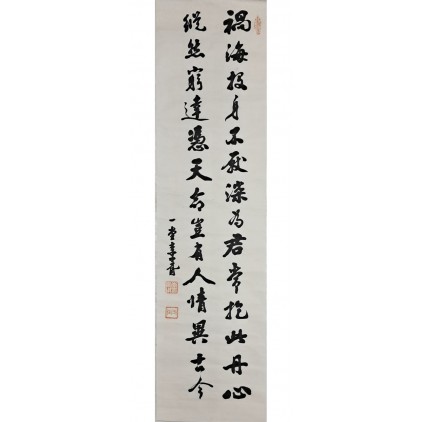 禍海投身不厭深為君常抱此丹心
縱然窮達憑天命豈有人情異古今
一堂